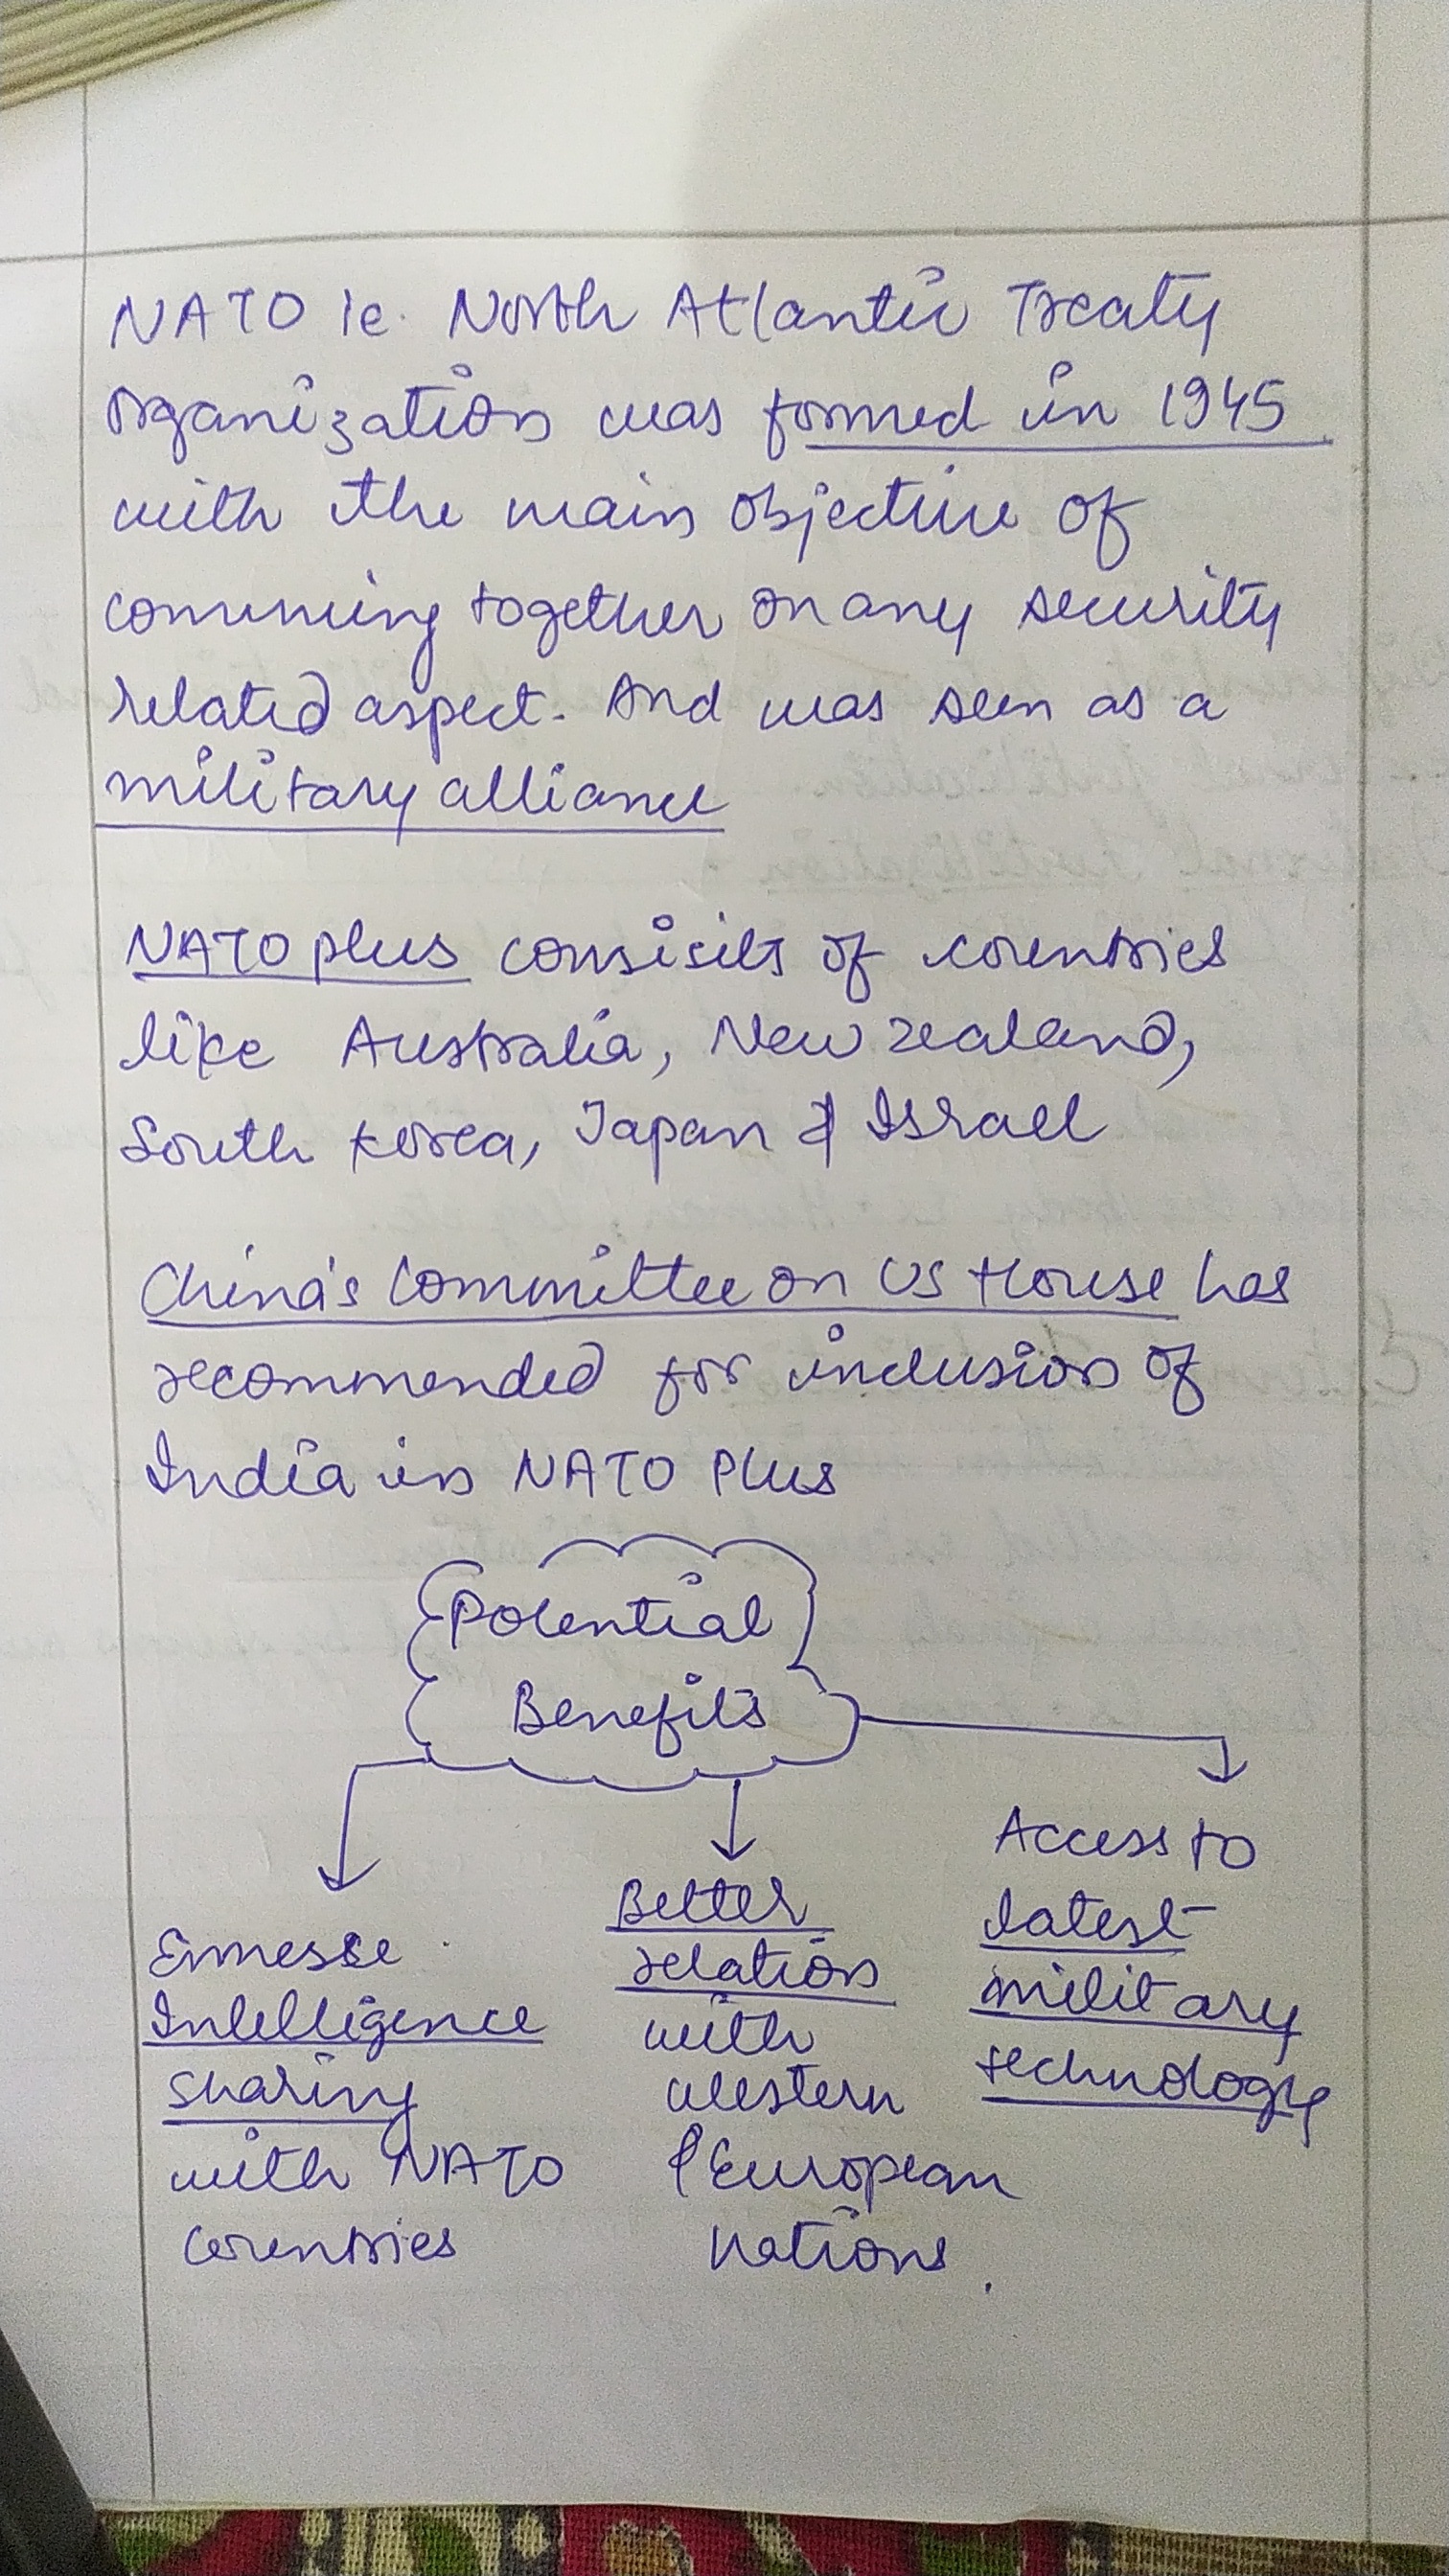 NATO ie. North Atlantic Treaty
Organization was formed in 1945
with the main objective of
comming together on any security
related aspect. And was seen as a
military alliance
NATO plus consisits of countries
like Australia, New zealand,
South Korea, Japan & Israel
China's Committee on US House has
recommended for inclusion of
India in NATO Plus
Potential
Benefits
Intelligence
sharing
with NATO
countries
Better
relation
with
western
& European
nations.
Access to
latest
military
technology